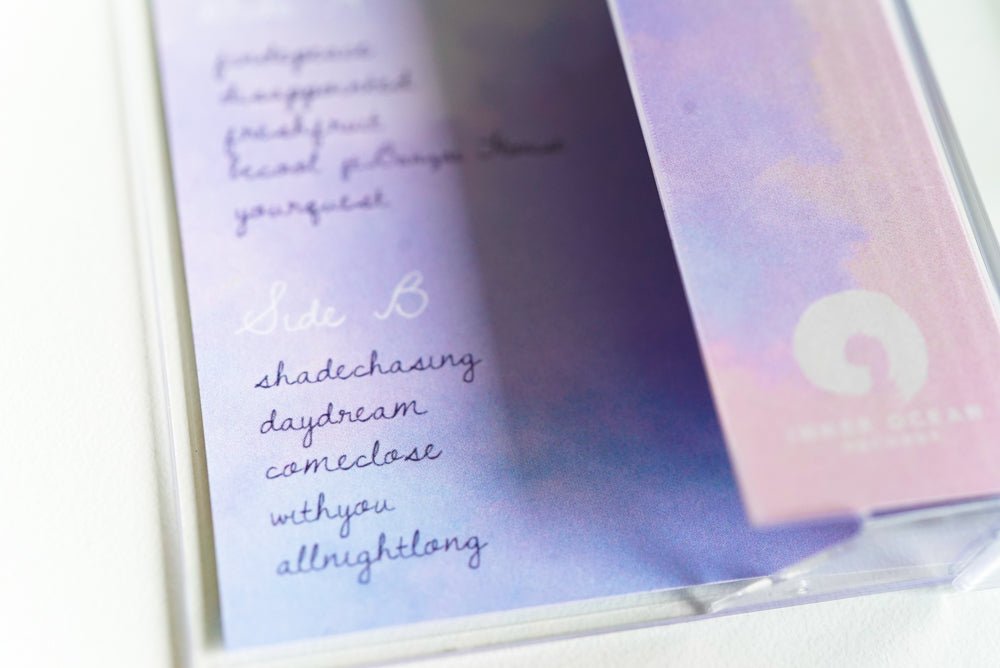 freshfruit
yourquest
Side B
shadechasing
daydream
comeclose
withyou
allnightlong
INNER OCEAN
RECORDS